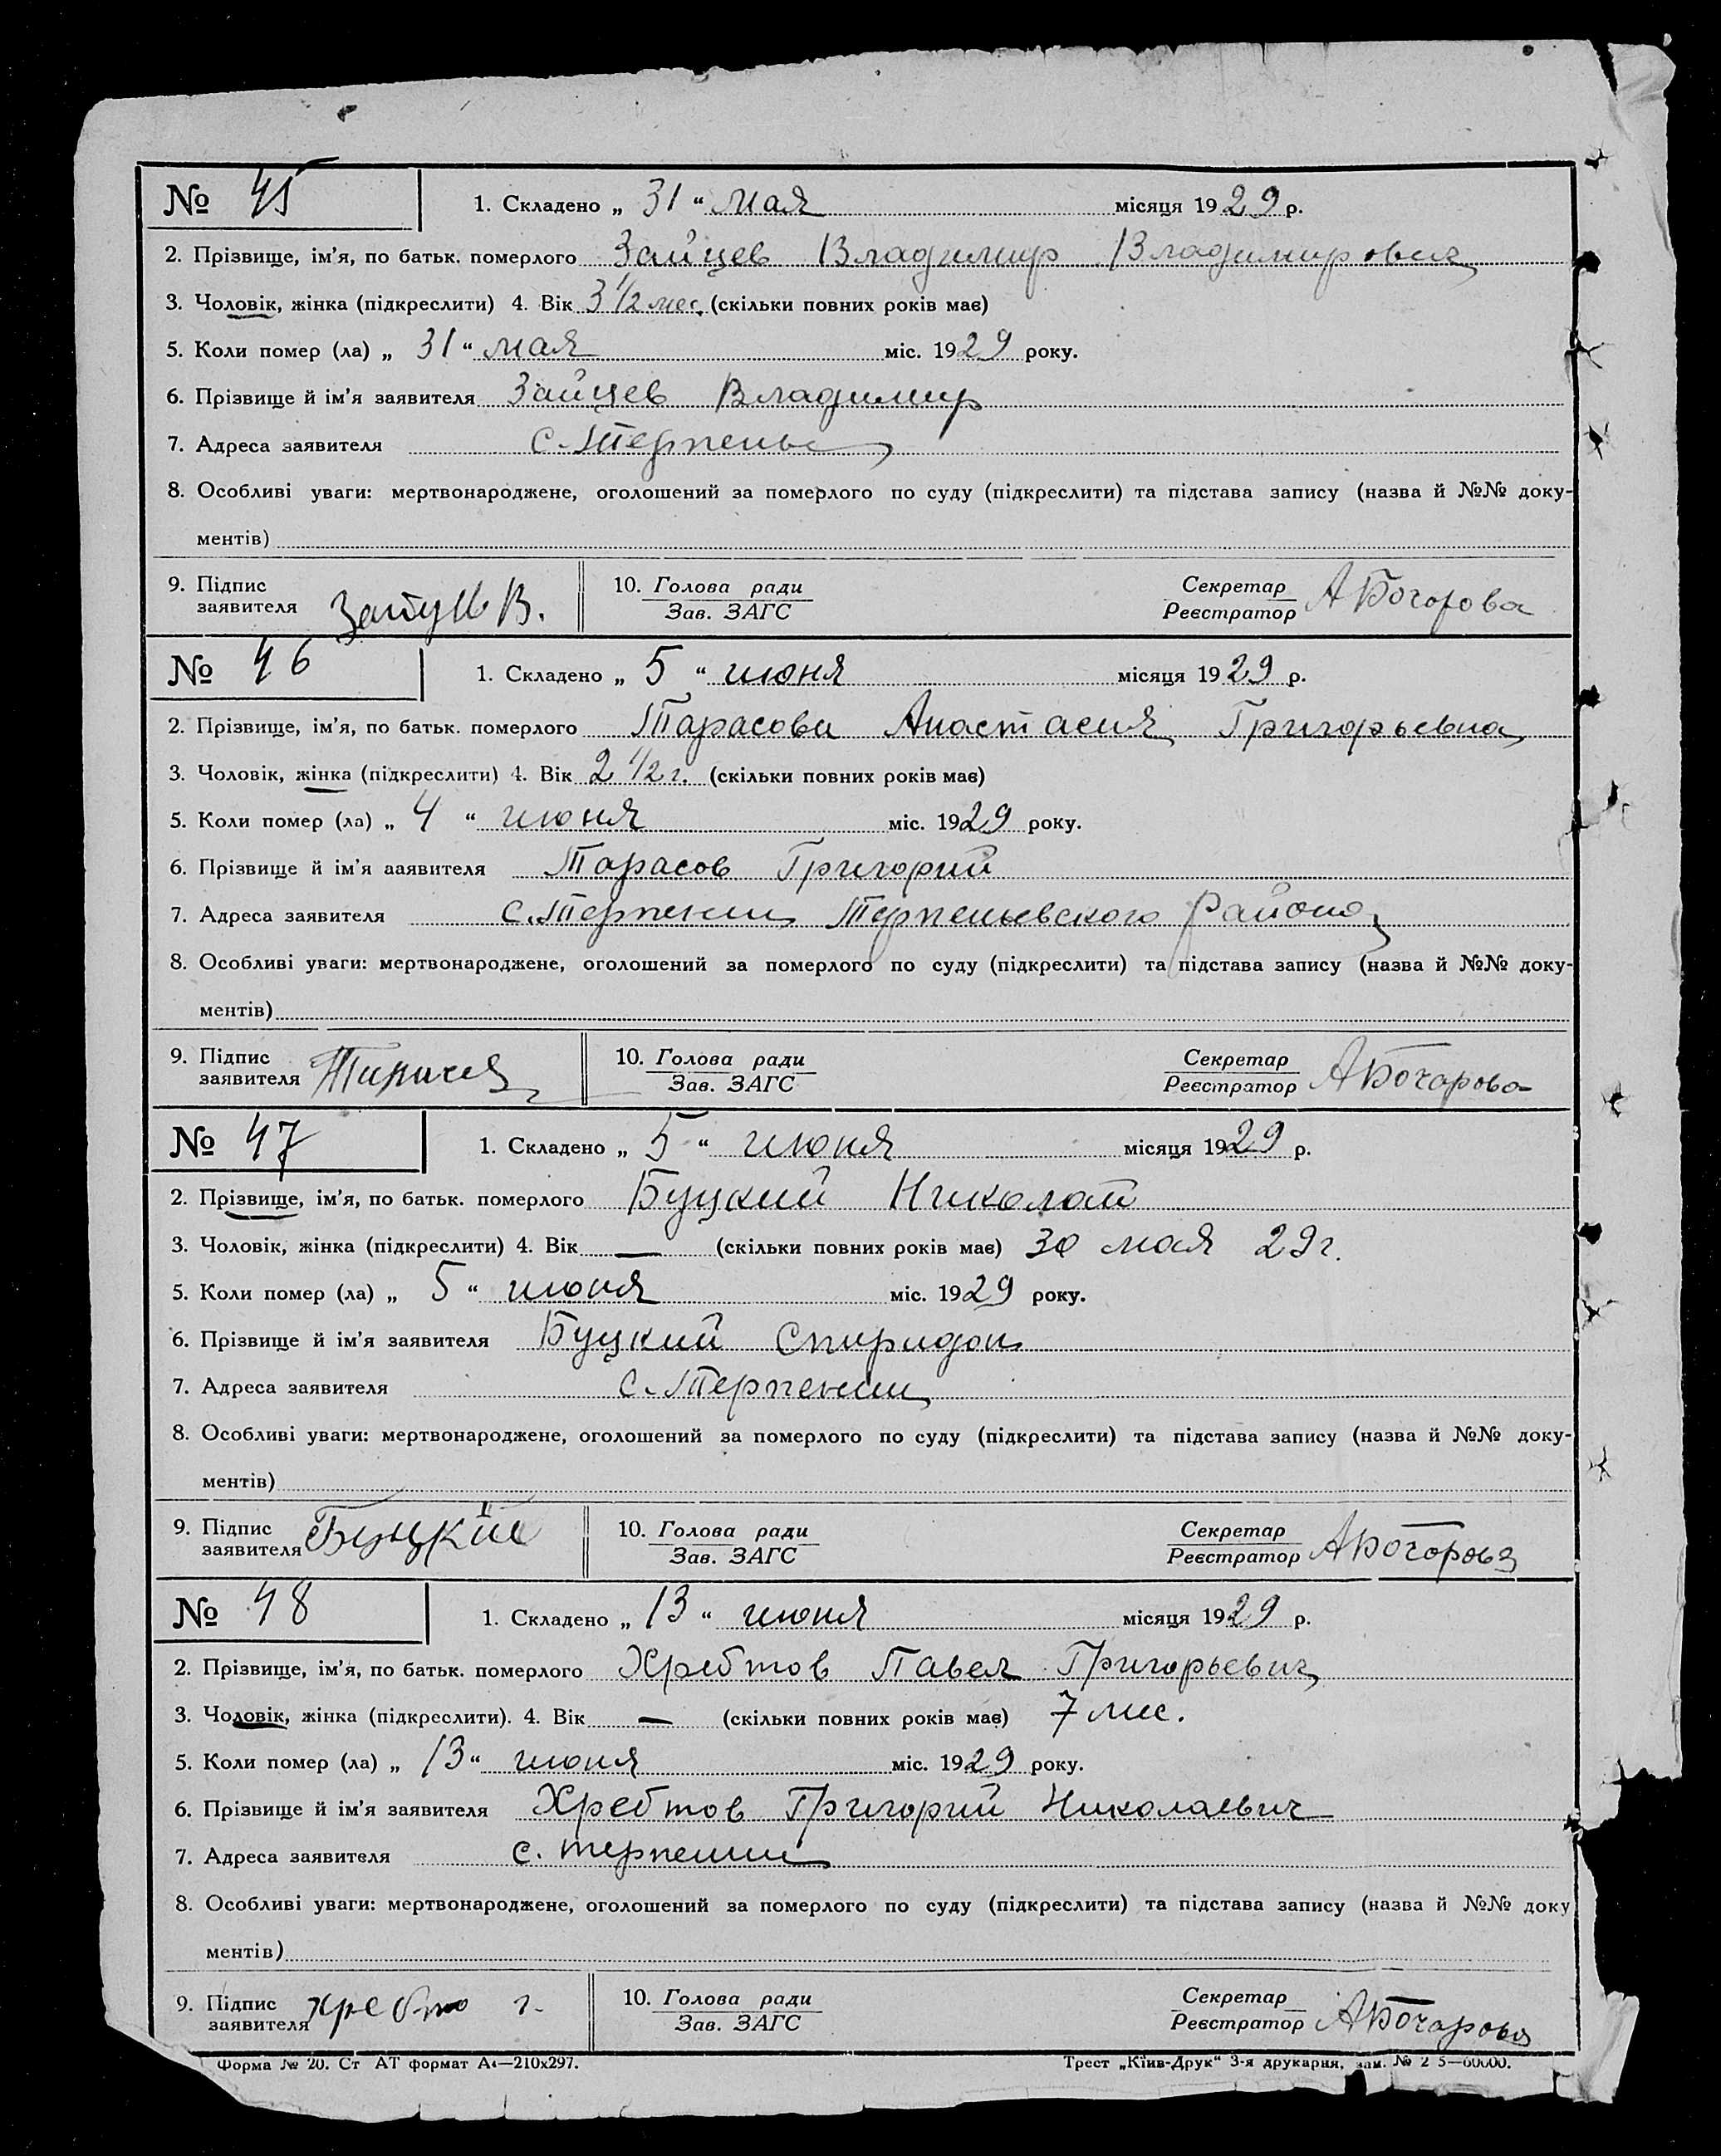 № 45 1. Складено „ 31 “ мая місяця 1929 р.
2. Прізвище, ім’я, по батьк. померлого Зайцев Владимир Владимирович
3. Чоловік, жінка (підкреслити) 4. Вік 3 1/2 мес. (скільки повних років має)
5. Коли помер (ла) „ 31 “ мая міс. 1929 року.
6. Прізвище й ім’я заявителя Зайцев Владимир
7. Адреса заявителя с. Терпенье
8. Особливі уваги: мертвонароджене, оголошений за померлого по суду (підкреслити) та підстава запису (назва й №№ доку-
ментів)
9. Підпис заявителя В. 10. Голова ради Зав. ЗАГС Секретар Реєстратор АБочарова
№ 46 1. Складено „ 5 “ июня місяця 1929 р.
2. Прізвище, ім’я, по батьк. померлого Тарасова Анастасия Григорьевна
3. Чоловік, жінка (підкреслити) 4. Вік 2 1/2 г. (скільки повних років має)
5. Коли помер (ла) „ 4 “ июня міс. 1929 року.
6. Прізвище й ім’я ааявителя Тарасов Григорий
7. Адреса заявителя с. Терпении Терпеньевского района
8. Особливі уваги: мертвонароджене, оголошений за померлого по суду (підкреслити) та підстава запису (назва й №№ доку-
ментів)
9. Підпис заявителя 10. Голова ради Зав. ЗАГС Секретар Реєстратор АБочарова
№ 47 1. Складено „ 5 “ июня місяця 1929 р.
2. Прізвище, ім’я, по батьк. померлого Буцкий Николай
3. Чоловік, жінка (підкреслити) 4. Вік — (скільки повних років має) 30 мая 29 г.
5. Коли помер (ла) „ 5 “ июня міс. 1929 року.
6. Прізвище й ім’я заявителя Буцкий Спиридон
7. Адреса заявителя с. Терпении
8. Особливі уваги: мертвонароджене, оголошений за померлого по суду (підкреслити) та підстава запису (назва й №№ доку-
ментів)
9. Підпис заявителя Буцкий 10. Голова ради Зав. ЗАГС Секретар Реєстратор АБочарова
№ 48 1. Складено „ 13 “ июня місяця 1929 р.
2. Прізвище, ім’я, по батьк. померлого Хребтов Павел Григорьевич
3. Чоловік, жінка (підкреслити). 4. Вік — (скільки повних років має) 7 мес.
5. Коли помер (ла) „ 13 “ июня міс. 1929 року.
6. Прізвище й ім’я заявителя Хребтов Григорий Николаевич
7. Адреса заявителя с. терпении
8. Особливі уваги: мертвонароджене, оголошений за померлого по суду (підкреслити) та підстава запису (назва й №№ доку
ментів)
9. Підпис заявителя г. 10. Голова ради Зав. ЗАГС Секретар Реєстратор АБочарова
Форма № 20. Ст АТ формат А4—210х297. Трест „Київ-Друк“ 3-я друкарня, зам. №